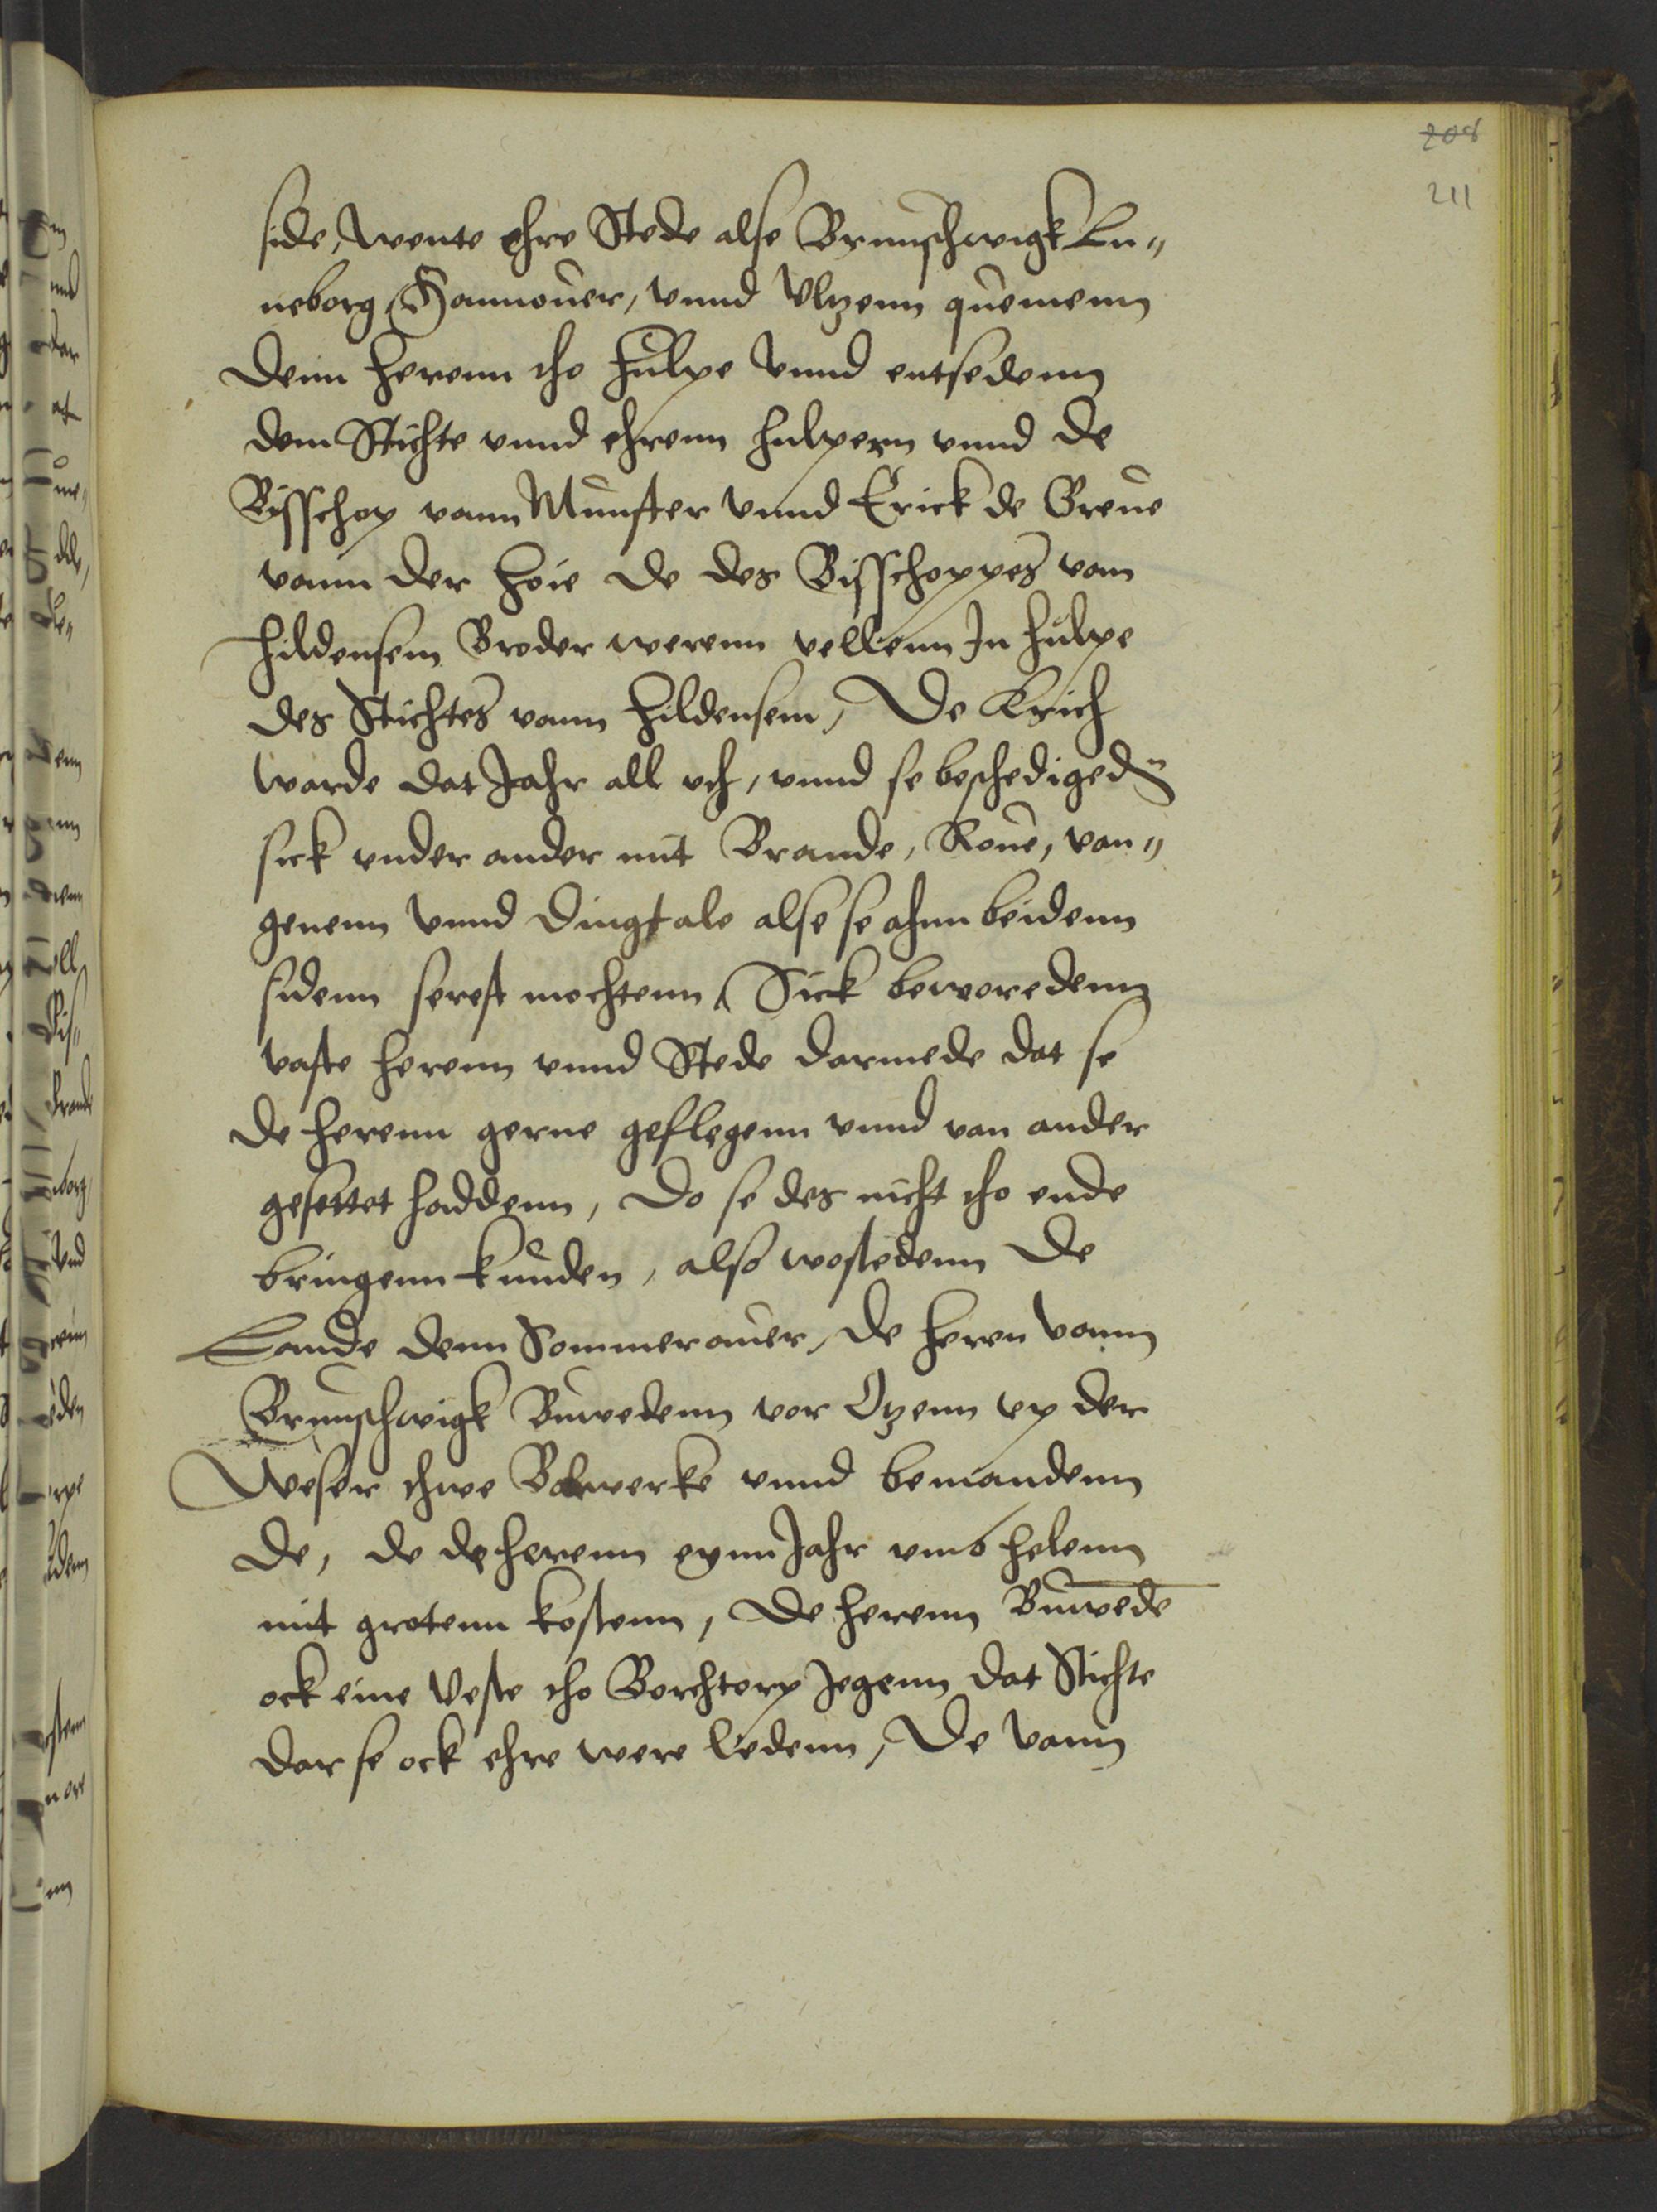 208
211
side, wente ehre Stede alse Brunschwigk Lu„
neborg, Hannouer, vnnd Vltzenn quemenn
denn herenn tho hulpe vnnd entsedenn
dem Stichte vnnd ehrenn hulpern vnnd de
Bisschop vann Munster vnnd Erick de Greue
vann der Hoie de des Bisschoppes vam
Hildensem Broder werenn vellenn In hulpe
des Stichtes vann Hildensem, De Krich
warde dat Jahr all vth, vnnd se beschedigedn
sick vnder ander mit Brande, Roue, van„
genenn vnnd dingtale alse se ahnn beidenn
sidenn serest mochtenn, Sick beworedenn
vaste herenn vnnd Stede darmede dat se
de herenn gerne geflegenn vnnd van ander
gesettet haddenn, Do se des nicht tho ende
bringenn kunden, also wostedenn de
Lande denn Sommer auer, de heren vann
Brunschwigk Buwedenn vor Otzenn vp der
Weser thwe Bolwerke vnnd bemandenn
de, de de herenn eynn Jahr vmb helenn
mit grotenn kostenn, De herenn Buwede
ock eine Veste tho Borchtorp Jegenn dat Stichte
dar se ock ehre were ledenn, De vann